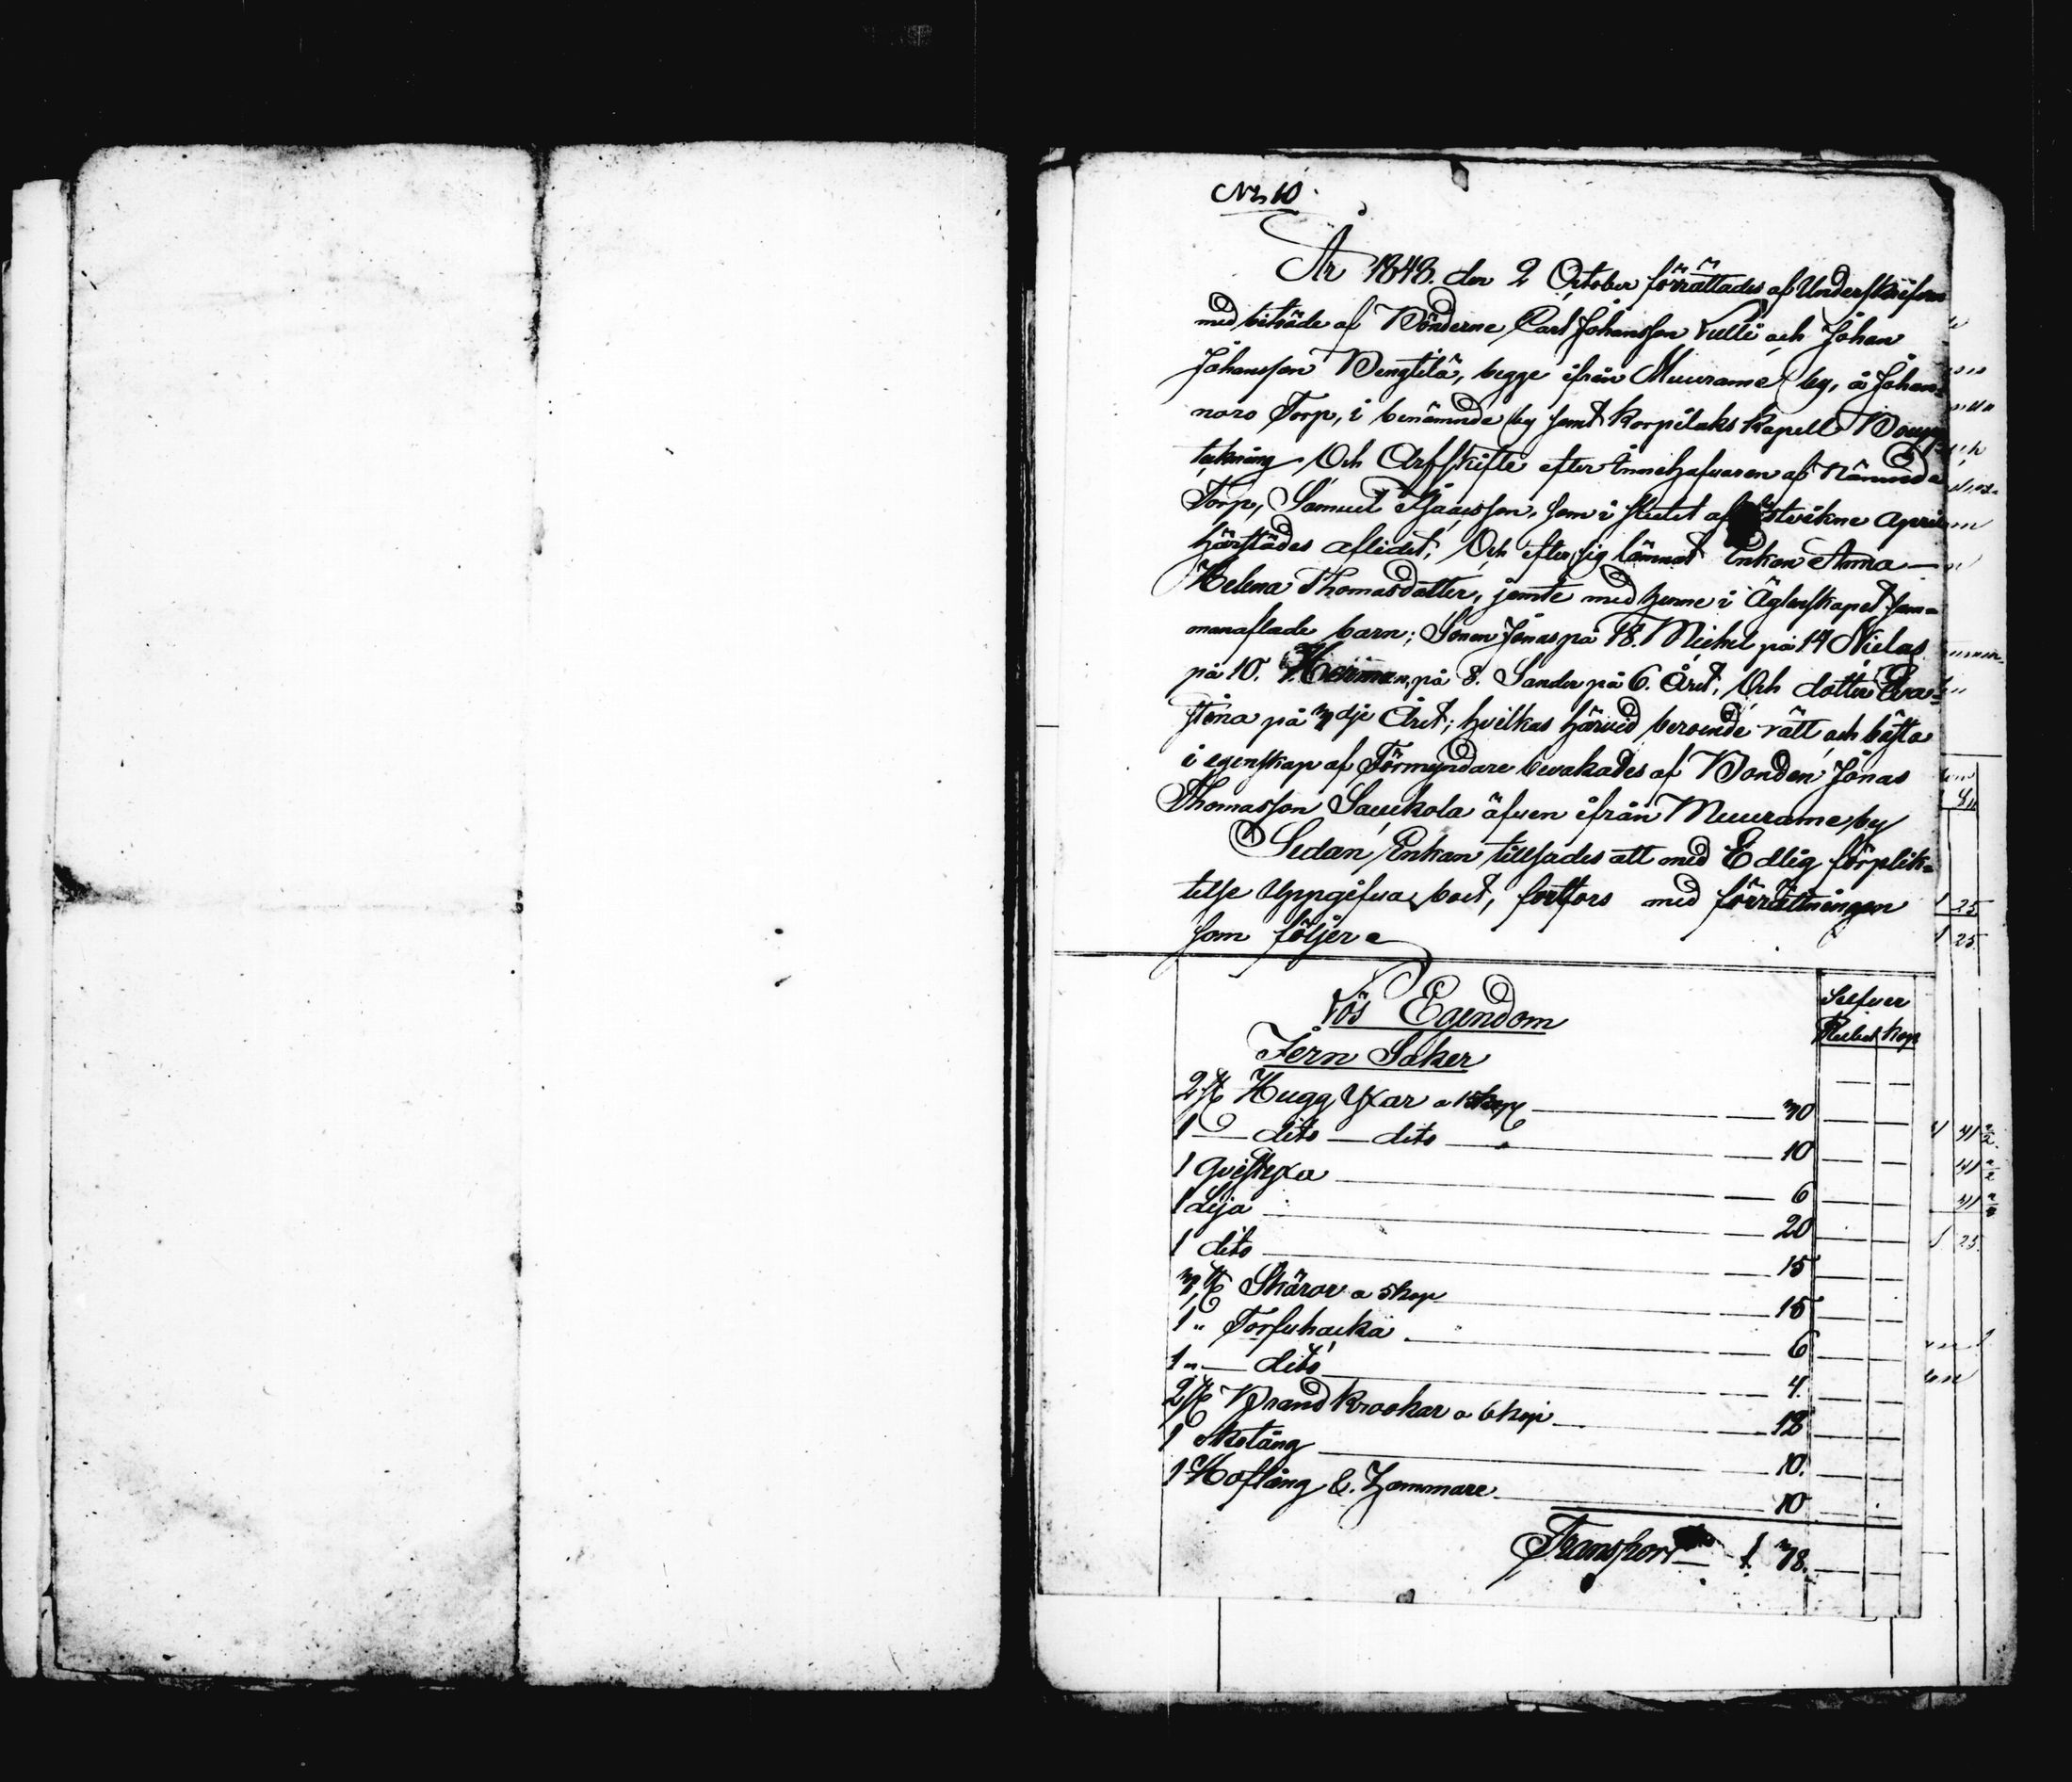 No 10.
År 1848. den 2 October förrättades af Underskrefven
med biträde af Bönderne Carl Johansson Velli och Johan
Johansson Bengtilä, begge ifrån Muurame by, å Johan-
noro Torp, i benämnde by samt Korpilaks Kapell Boupp
tekning Och Arfskifte efter Innehafvaren af Nämnde
Torp, Samuel Isaacsson, som i slutet af April
härstädes aflidit, Och efter sig lämnat Enkan Anna
Helena Thomasdotter, jemte med henne i Äktenskapet sam-
manaflade barn; Sonen Jonas på 18. Michel på 14 Nielas
på 10. Herman, på 8. Sander på 6. Året, Och dotter Eva
Stina på 3dje Året; hvilkas härvid beroende rätt och bästa
i egenskap af Förmyndare bevakades af Bonden Jonas
Thomasson Saukola äfven ifrån Muurame by
Sedan Enkan tillsades att med Edlig förplik-
telse Uppgifva boet, fortfors med förrättningen
som följer
Lös Egendom
Silfver
Rubel Kop
Jern Saker
2 st Hugg Yxar a 15 kop 30
1 dito dito 10
1 Qvistyxa 6
1 Lija 20
1 dito 15
3 st Skäror a 5 kop 15
1 " Torfvhacka 6
1 " dito 4.
2 st Brand Krookar a 6 kop 12
1 Skotång 10.
1 Hoftång & Hammare 10
Transport 1 38.